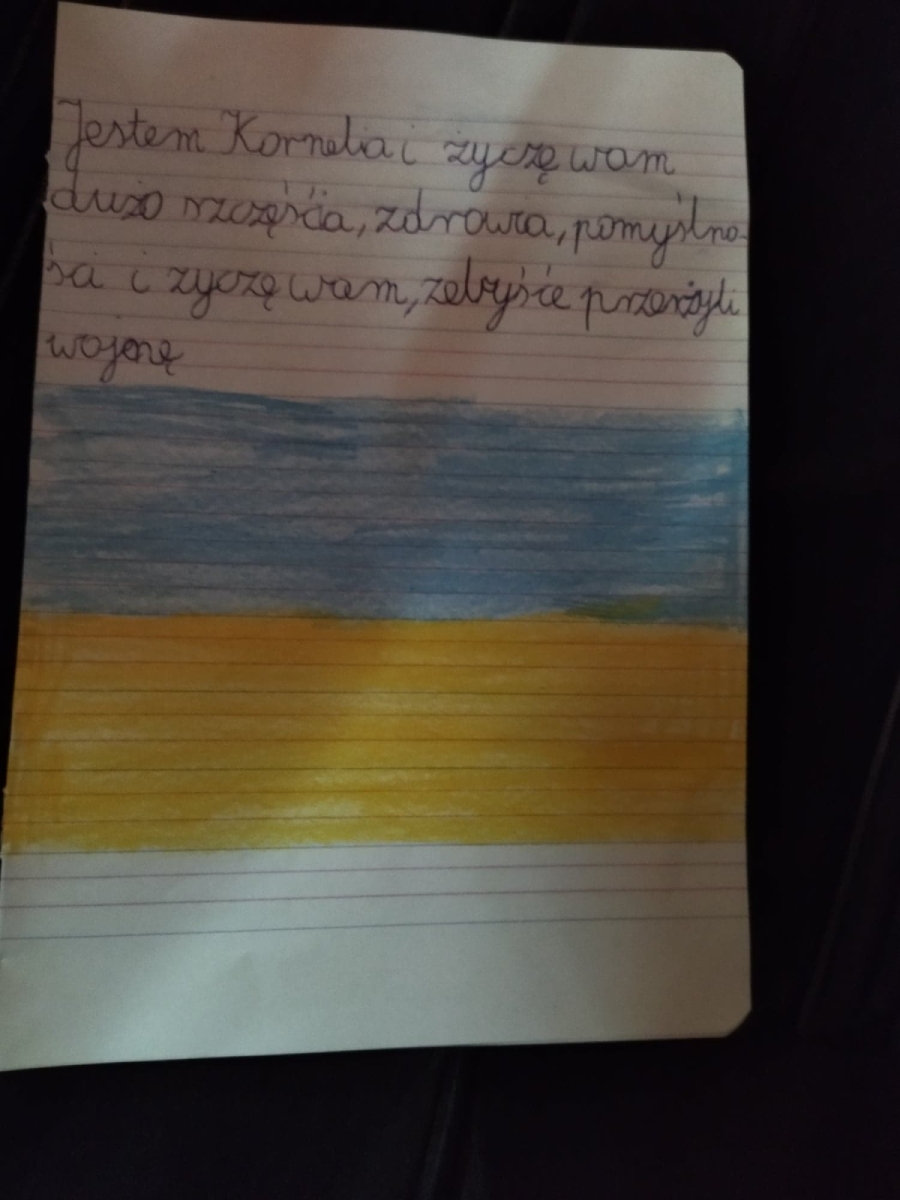 Jestem Kornelia i życzę wam
dużo szczęścia, zdrowia, pomyślno-
ści i życzę wam, żebyście przeżyli
wojnę